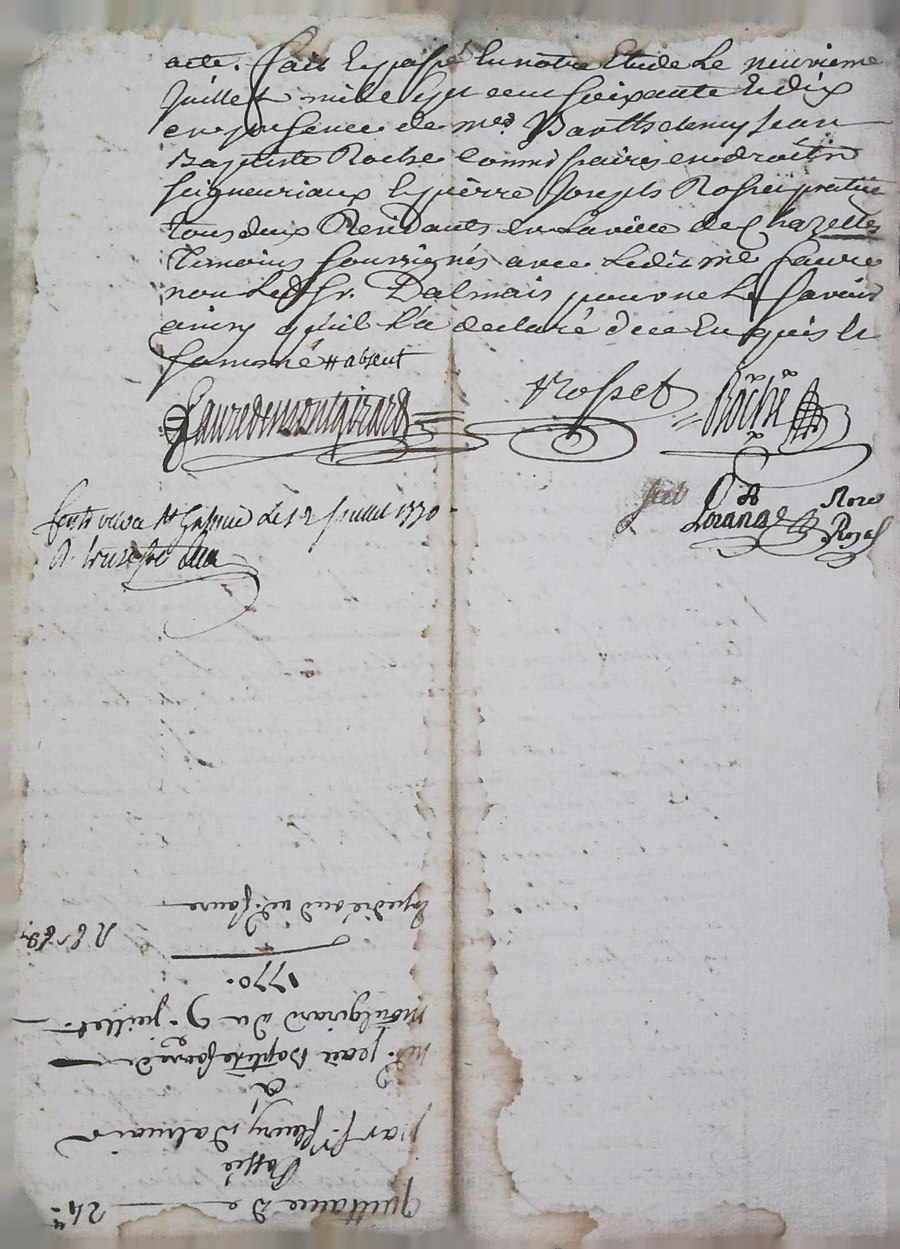 acte. fait et passé en notre Etude Le neuvieme
Juillet mille sept cent soixante et dix
en presence de mes. Barthelemy Jean
Baptiste Roche Commissaires en droits
seigneuriaux et pierre Joseph Rosset praticien
tous deux Residants en La ville de Chazelles
temoins soussignés avec Ledit me faure
non Led. Sr. Dalmais pour ne Le savoir
ainsy qu'il l'a declaré de ce Enquis et
sommé # absent
fauredemontgirard
Rosset
Roche
Le 12 Juillet 1770
Quittance de 24
Passée
par Sr. fleury Dalmais
a
me. jean Baptiste faure de
montgirard du 9e. juillet
1770.
Expedié aud. me. faure